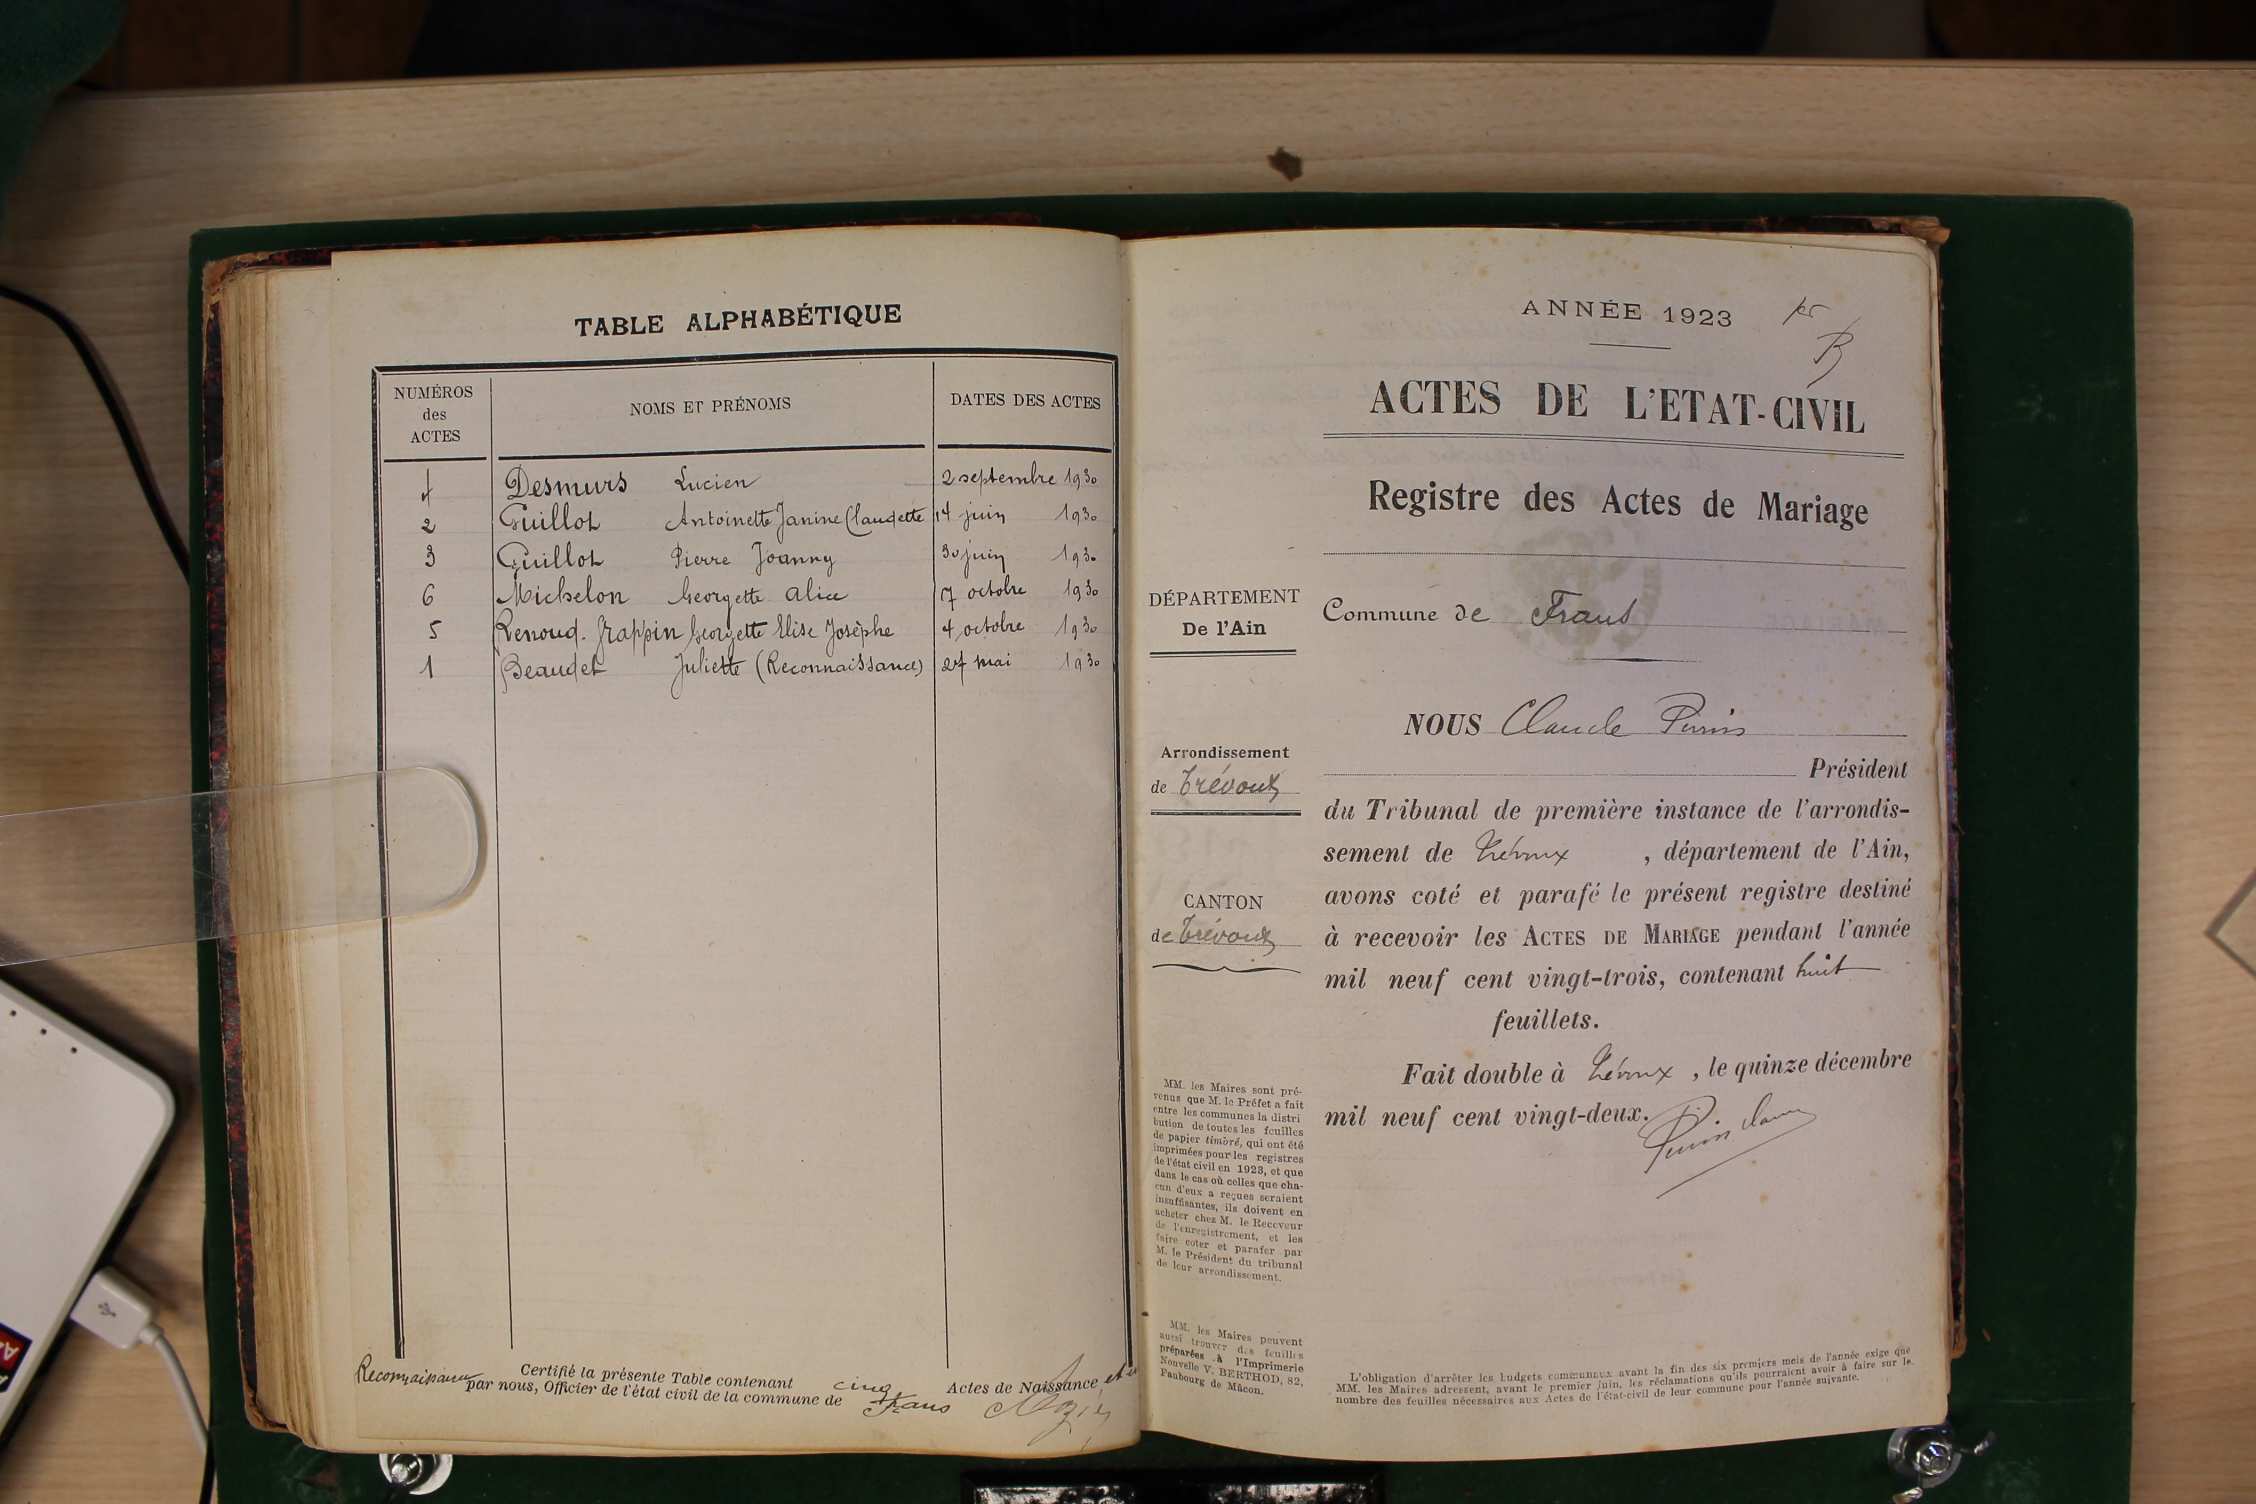 TABLE ALPHABÉTIQUE
NUMÉROS
des
ACTES
NOMS ET PRÉNOMS
DATES DES ACTES
4 Desmurs Lucien 2 septembre 1930
2 Guillot Antoinette Janine Claudette 14 juin 1930
3 Guillot Pierre Joanny 30 juin 1930
6 Michelon Georgette Alice 7 octobre 1930
5 Renoud-Grappin Georgette Elise Josèphe 4 octobre 1930
1 Beaudet Juliette (Reconnaissance) 27 mai 1930
Certifié la présente Table contenant cinq Actes de Naissance et un
Reconnaissance par nous, Officier de l'état civil de la commune de Frans
ANNÉE 1923
ACTES DE L'ETAT-CIVIL
Registre des Actes de Mariage
DÉPARTEMENT
De l'Ain
Commune de Frans
Arrondissement
de Trévoux
CANTON
de Trévoux
NOUS Claude
Président
du Tribunal de première instance de l'arrondis-
sement de Trévoux , département de l'Ain,
avons coté et parafé le présent registre destiné
à recevoir les ACTES DE MARIAGE pendant l'année
mil neuf cent vingt-trois, contenant huit
feuillets.
Fait double à Trévoux , le quinze décembre
mil neuf cent vingt-deux.
MM. les Maires sont pré-
venus que M. le Préfet a fait
entre les communes la distri
bution de toutes les feuilles
de papier timbré, qui ont été
imprimées pour les registres
de l'état civil en 1923, et que
dans le cas où celles que cha-
cun d'eux a reçues seraient
insuffisantes, ils doivent en
acheter chez M. le Receveur
de l'enregistrement, et les
faire coter et parafer par
M. le Président du tribunal
de leur arrondissement.
MM. les Maires peuvent
aussi trouver des feuilles
préparées à l'Imprimerie
Nouvelle V. BERTHOD, 82,
Faubourg de Mâcon.
L'obligation d'arrêter les budgets communaux avant la fin des six premiers mois de l'année exige que
MM. les Maires adressent, avant le premier juin, les réclamations qu'ils pourraient avoir à faire sur le
nombre des feuilles nécessaires aux Actes de l'état-civil de leur commune pour l'année suivante.